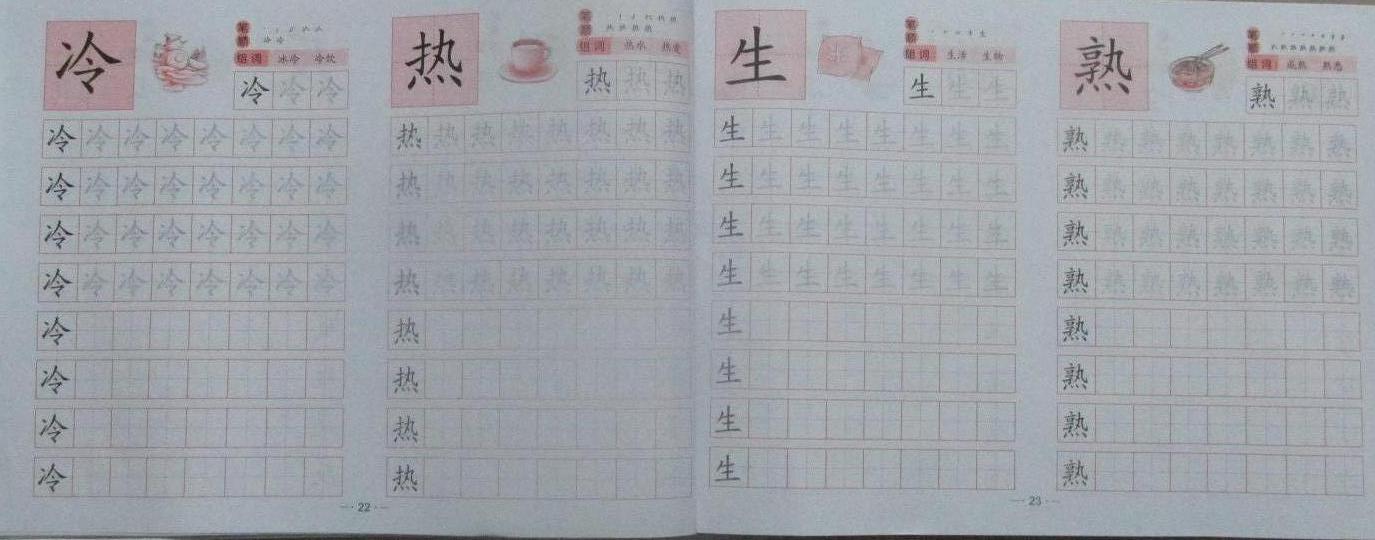 冷
笔顺
组词 冰冷 冷饮
冷 冷 冷
冷 冷 冷 冷 冷 冷 冷 冷
冷 冷 冷 冷 冷 冷 冷 冷
冷 冷 冷 冷 冷 冷 冷 冷
冷 冷 冷 冷 冷 冷 冷 冷
冷
冷
冷
冷
热
笔顺
组词 热水 热爱
热 热 热
热 热 热 热 热 热 热 热
热 热 热 热 热 热 热 热
热 热 热 热 热 热 热 热
热 热 热 热 热 热 热 热
热
热
热
热
22
生
笔顺
组词 生活 生物
生 生 生
生 生 生 生 生 生 生 生
生 生 生 生 生 生 生 生
生 生 生 生 生 生 生 生
生 生 生 生 生 生 生 生
生
生
生
生
熟
笔顺
组词 成熟 熟悉
熟 熟 熟
熟 熟 熟 熟 熟 熟 熟 熟
熟 熟 熟 熟 熟 熟 熟 熟
熟 熟 熟 熟 熟 熟 熟 熟
熟 熟 熟 熟 熟 熟 熟 熟
熟
熟
熟
熟
23